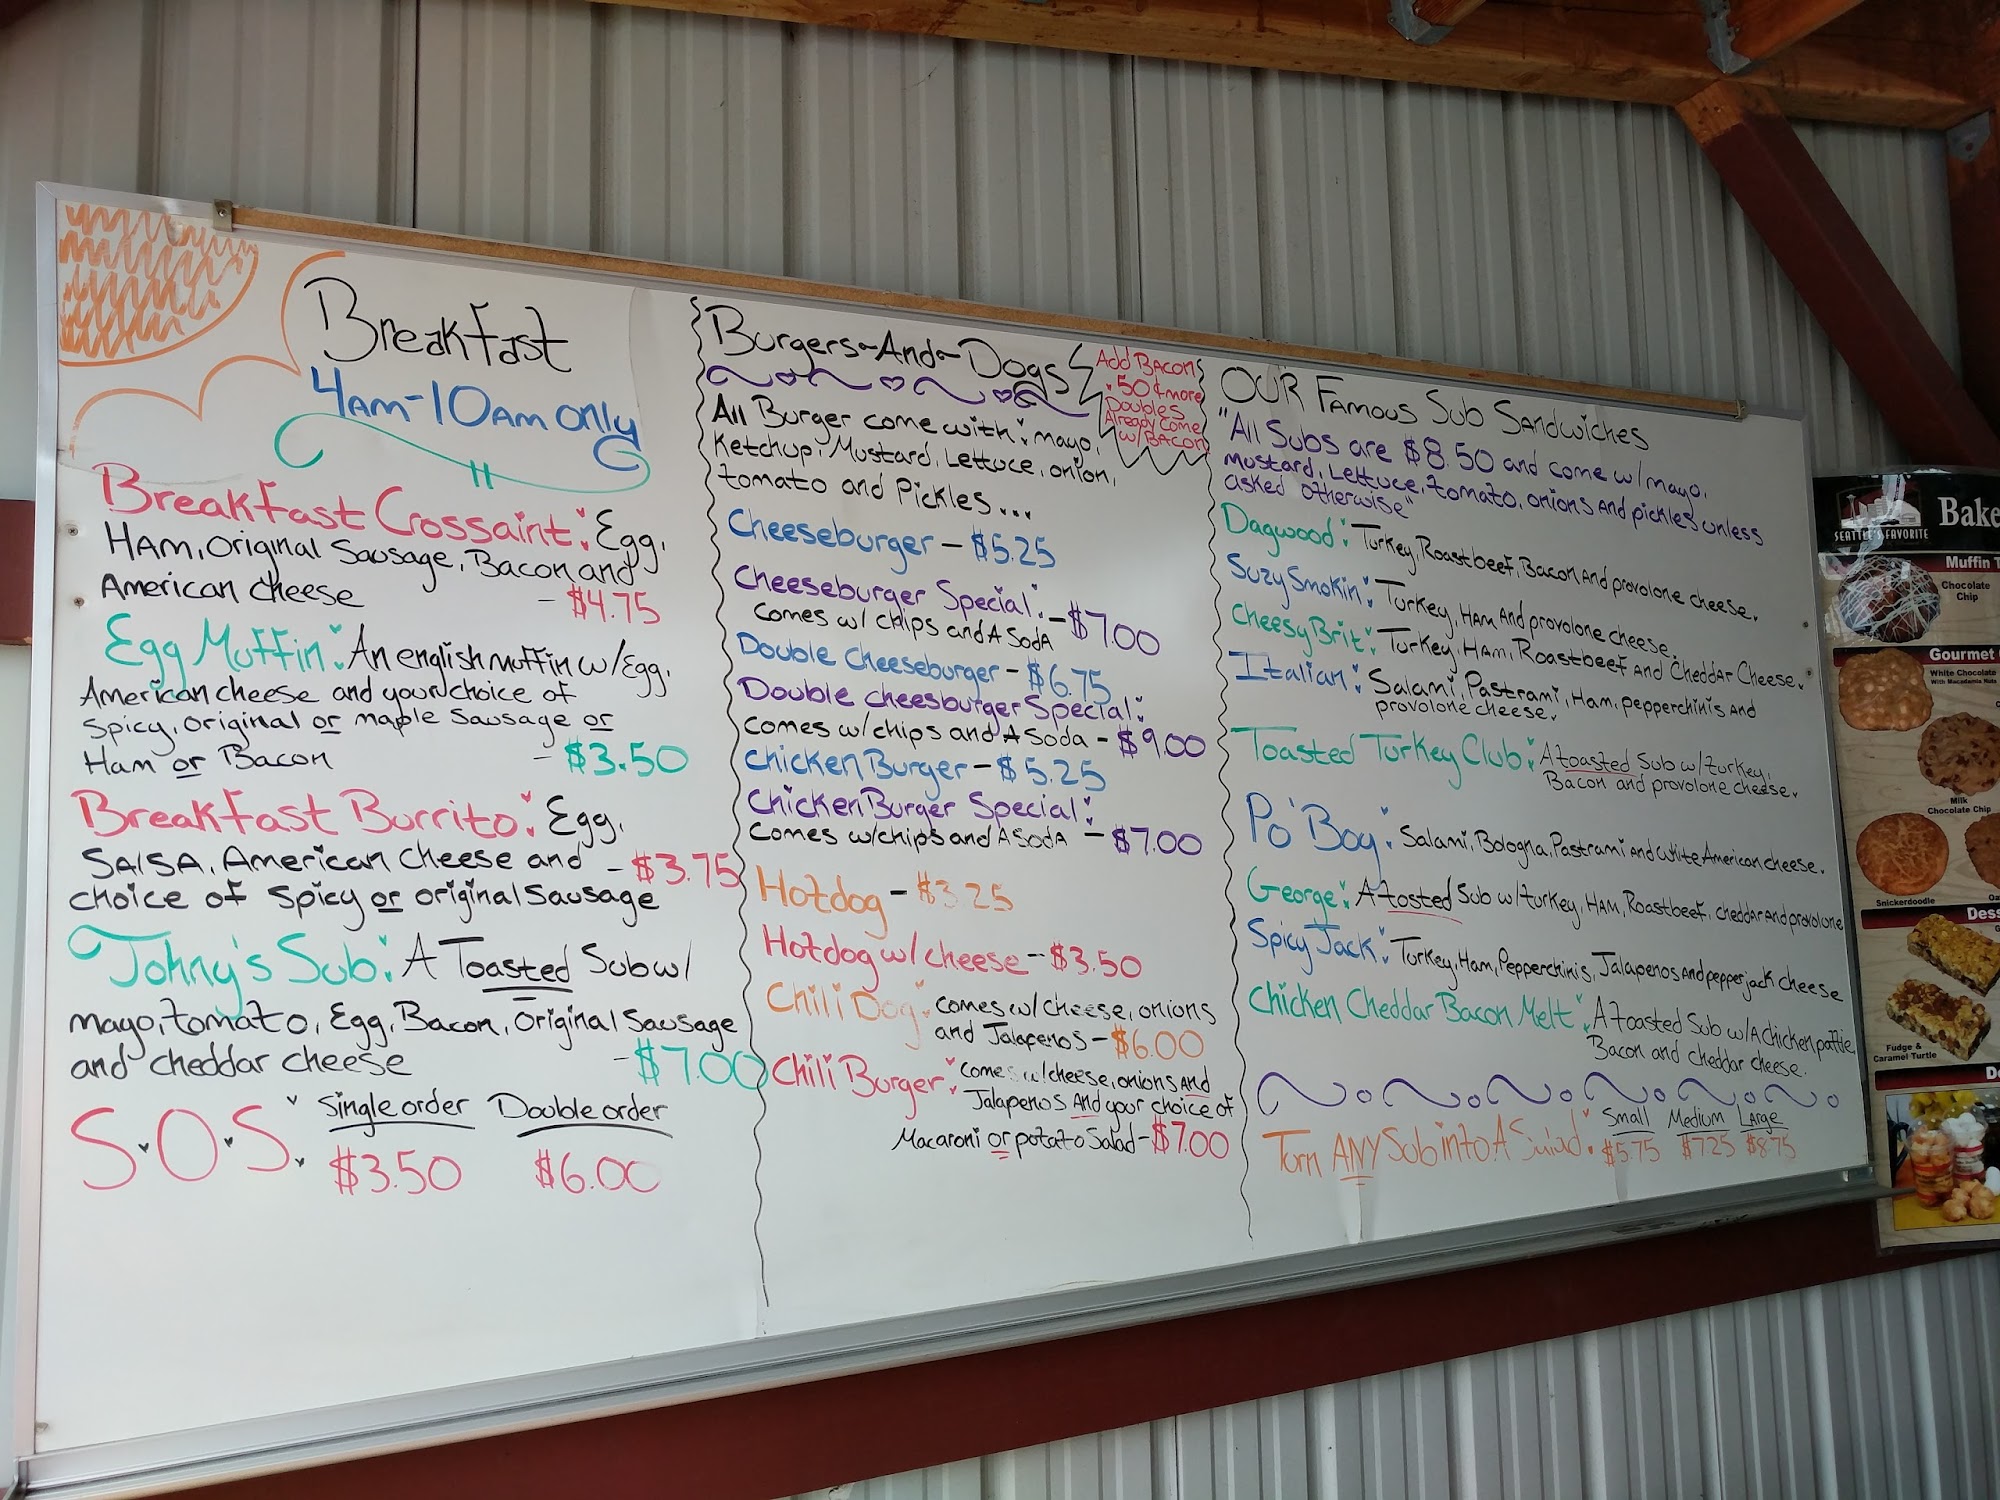 Breakfast
4am-10am only
Breakfast Crossaint: Egg,
Ham, Original Sausage, Bacon and
American cheese - $4.75
Egg Muffin: An english muffin w/ Egg,
American cheese and your choice of
spicy, original or maple sausage or
Ham or Bacon - $3.50
Breakfast Burrito: Egg,
SAlSA, American cheese and - $3.75
choice of spicy or original sausage
Johny's Sub: A Toasted Sub w/
mayo, tomato, Egg, Bacon, original Sausage
and cheddar cheese - $7.00
S.O.S. Single order Double order
$3.50 $6.00
Burgers-And-Dogs
Add Bacon
.50¢ more
Doubles
Already come
w/ Bacon
All Burger come with: mayo,
Ketchup, Mustard, Lettuce, onion,
tomato and Pickles...
Cheeseburger - $5.25
Cheeseburger Special: - $7.00
Comes w/ chips and A SodA
Double Cheeseburger - $6.75
Double cheesburger Special:
comes w/chips and A Soda - $9.00
Chicken Burger - $5.25
Chicken Burger Special:
Comes w/chips and A SodA - $7.00
Hotdog - $3.25
Hotdog w/ cheese - $3.50
Chili Dog: comes w/ cheese, onions
and Jalapenos - $6.00
Chili Burger: comes w/cheese, onions And
Jalapenos And your choice of
Macaroni or potato Salad - $7.00
OUR Famous Sub Sandwiches
"All Subs are $8.50 and come w/ mayo,
Mustard, Lettuce, tomato, onions And pickles unless
asked otherwise"
Dagwood: Turkey, Roastbeef, Bacon And provolone cheese.
Suzy Smokin: Turkey, Ham And provolone cheese.
Cheesy Brit: Turkey, Ham, Roastbeef And Cheddar Cheese.
Italian: Salami, Pastrami, Ham, pepperchinis And
provolone cheese.
Toasted Turkey Club: A toasted Sub w/ turkey,
Bacon and provolone cheese.
Po'Boy: Salami, Bologna, Pastrami And white American cheese.
George: A tosted Sub w/ turkey, Ham, Roastbeef, cheddar and provolone
Spicy Jack: Turkey, Ham, Pepperchinis, Jalapenos And pepperjack cheese
Chicken Cheddar Bacon Melt: A toasted Sub w/ A Chicken pattie,
Bacon and cheddar cheese.
Small Medium Large
Turn ANY Sub into A : $5.75 $7.25 $8.75
SEATTLE'S FAVORITE
Chocolate
Chip
White Chocolate
With Macadamia Nuts
Milk
Chocolate Chip
Snickerdoodle
Fudge &
Caramel Turtle